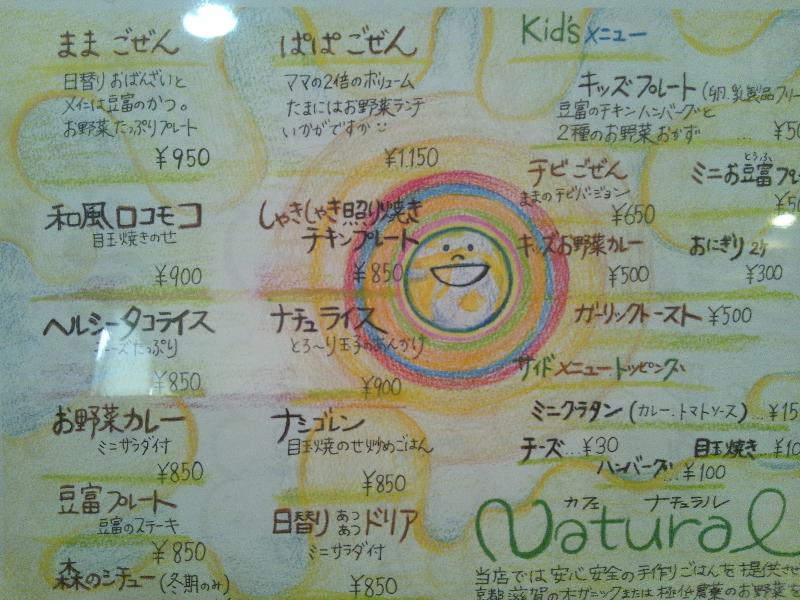 まま ごぜん
日替り おばんざいと
メインは豆富のかつ。
お野菜たっぷりプレート
¥950
和風ロコモコ
目玉焼きのせ
¥900
ヘルシータコライス
チーズたっぷり
¥850
お野菜カレー
ミニサラダ付
¥850
豆富プレート
豆富のステーキ
¥850
森のシチュー(冬期のみ)
ぱぱ ごぜん
ママの2倍のボリューム
たまにはお野菜ランチ
いかがですか
¥1,150
しゃきしゃき照り焼き
チキンプレート
¥850
ナチュライス
とろ〜り玉子のあんかけ
¥900
ナシゴレン
目玉焼のせ炒めごはん
¥850
日替り あつあつ ドリア
ミニサラダ付
¥850
Kid's メニュー
キッズプレート (卵.乳製品フリー
豆富のチキンハンバーグと
2種のお野菜おかず
チビごぜん
ままのチビバージョン
¥650
ミニお豆富プレー
とうふ
キッズお野菜カレー
¥500
おにぎり 2ケ
¥300
ガーリックトースト ¥500
サイドメニュートッピング
ミニグラタン (カレー.トマトソース)
チーズ...¥30 目玉焼き
ハンバーグ...¥100
カフェ ナチュラル
Natural
当店では安心安全の手作りごはんを提供させ
京都 滋賀のオーガニックまたは 極低農薬のお野菜を